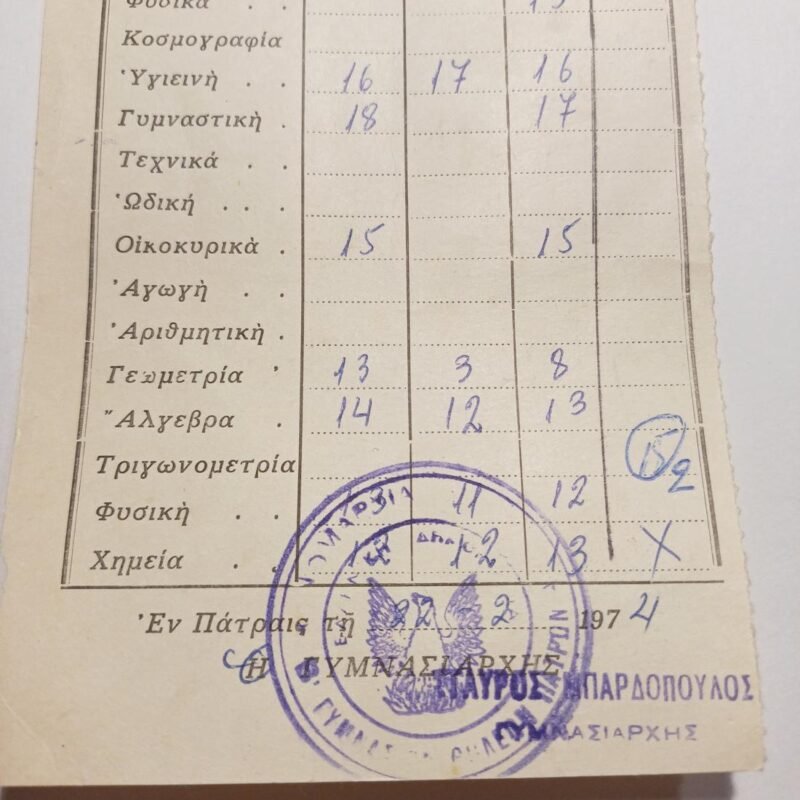 Φυσικὰ 15
Κοσμογραφία
Ὑγιεινὴ . . 16 17 16
Γυμναστικὴ . 18 17
Τεχνικά . .
Ὠδική . . .
Οἰκοκυρικὰ . 15 15
Ἀγωγὴ . .
Ἀριθμητικὴ .
Γεωμετρία 13 3 8
Ἄλγεβρα . 14 12 13
Τριγωνομετρία 15 2
Φυσικὴ . . 13 11 12
Χημεία . . 12 12 13 X
Ἐν Πάτραις τῇ 22 - 2 1974
Η ΓΥΜΝΑΣΙΑΡΧΗΣ
ΣΤΑΥΡΟΣ ΜΠΑΡΔΟΠΟΥΛΟΣ
ΓΥΜΝΑΣΙΑΡΧΗΣ
Β. ΓΥΜΝΑΣ ΘΗΛΕΩΝ ΠΑΤΡΩΝ